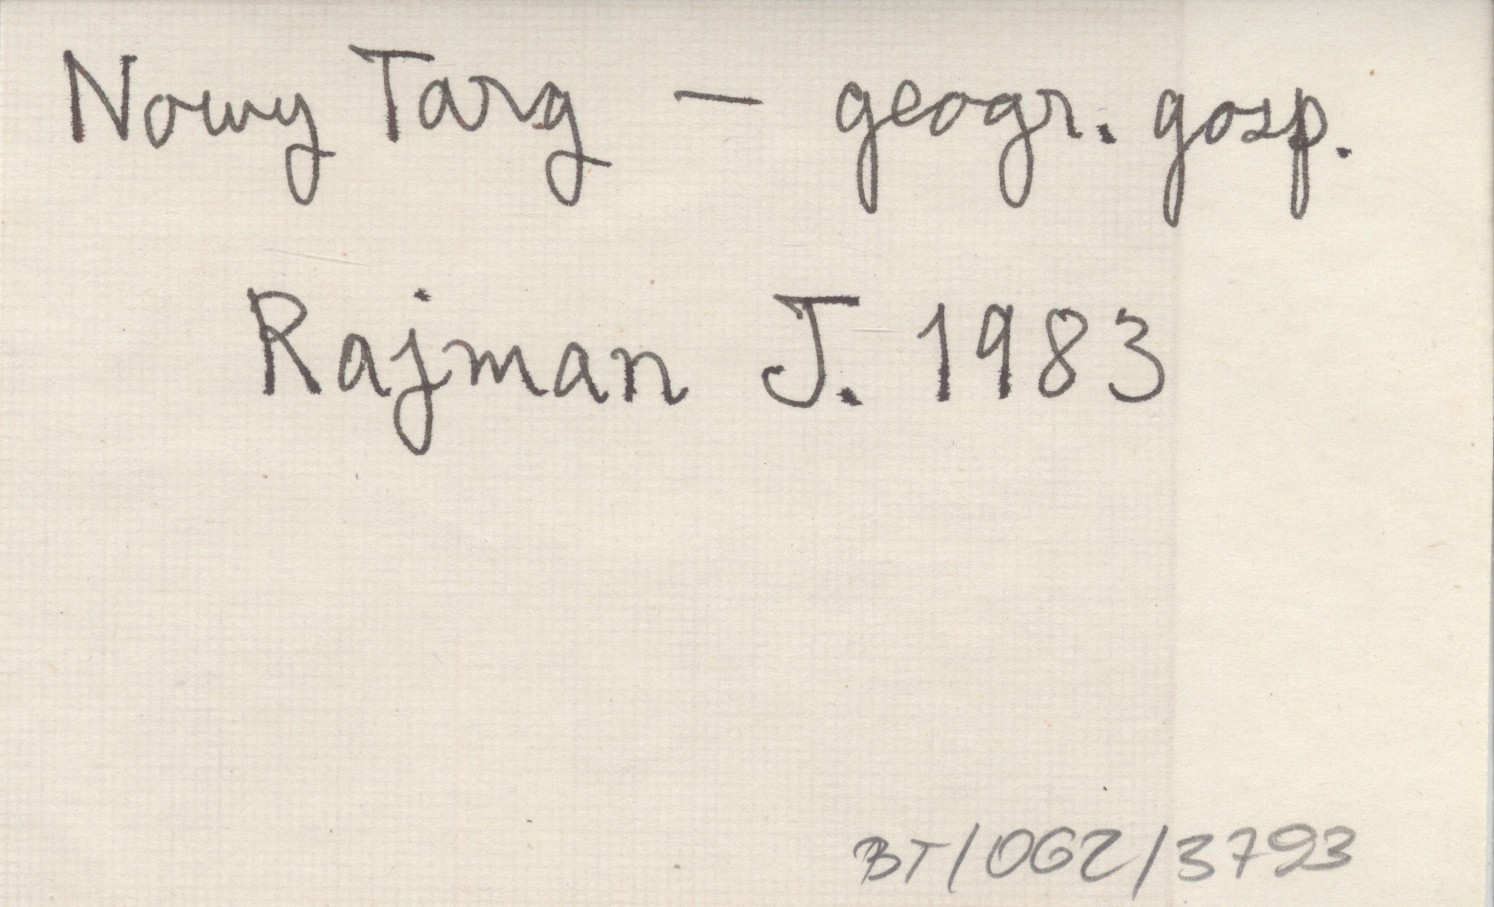 Nowy Targ – geogr. gosp.
Rajman J. 1983
BT/OGZ/3793